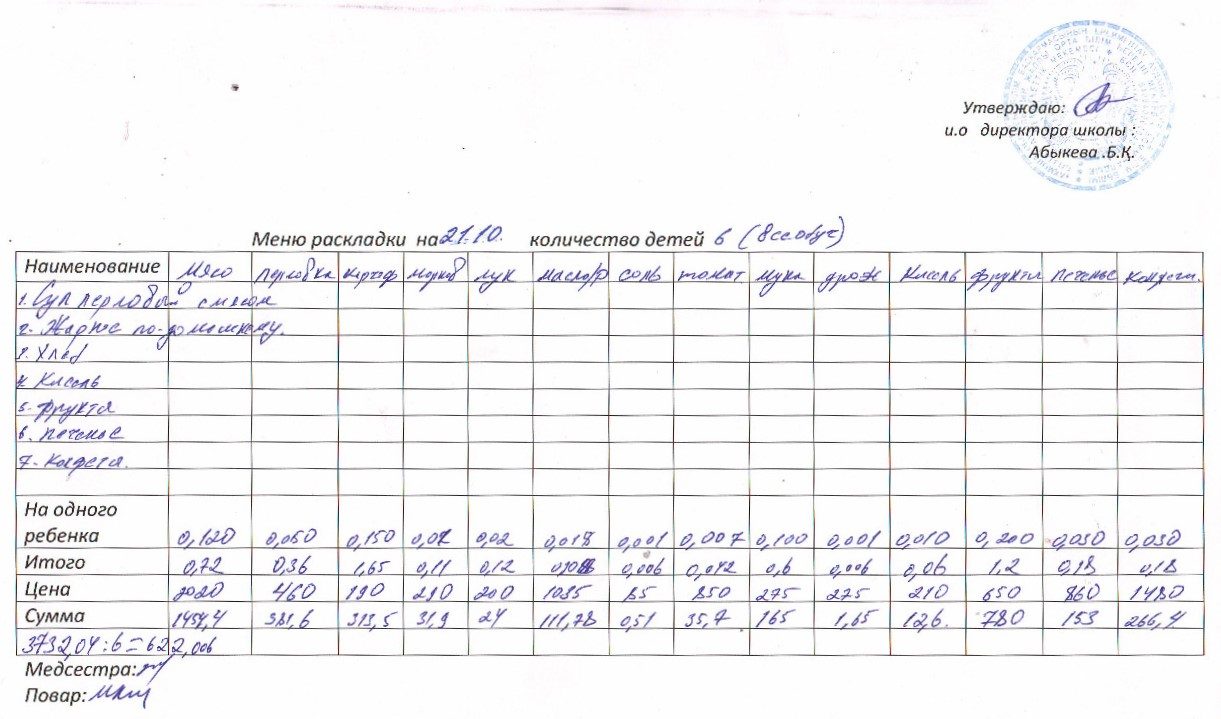 Утверждаю:
и.о директора школы :
Абыкева .Б.Қ.
Меню раскладки на 21.10. количество детей 6
Наименование Мясо перловка картоф морков лук масло/р соль томат мука дрож Кисель фрукты печенье конфеты.
1. Суп перловый с мясом
2. Жаркое по-домашнему.
3. Хлеб
4. Кисель
5. фрукты
6. печенье
7. Конфеты.
На одного
ребенка 0,120 0,060 0,150 0,02 0,02 0,018 0,001 0,007 0,100 0,001 0,010 0,200 0,030 0,030
Итого 0,72 0,36 1,65 0,11 0,12 0,108 0,006 0,042 0,6 0,006 0,06 1,2 0,18 0,18
Цена 2020 460 190 290 200 1035 85 850 275 275 210 650 860 1480
Сумма 1454,4 313,5 31,9 24 111,78 0,51 35,7 165 1,65 12,6 780 153 266,4
3732,04 : 6 = 622,006
Медсестра:
Повар: